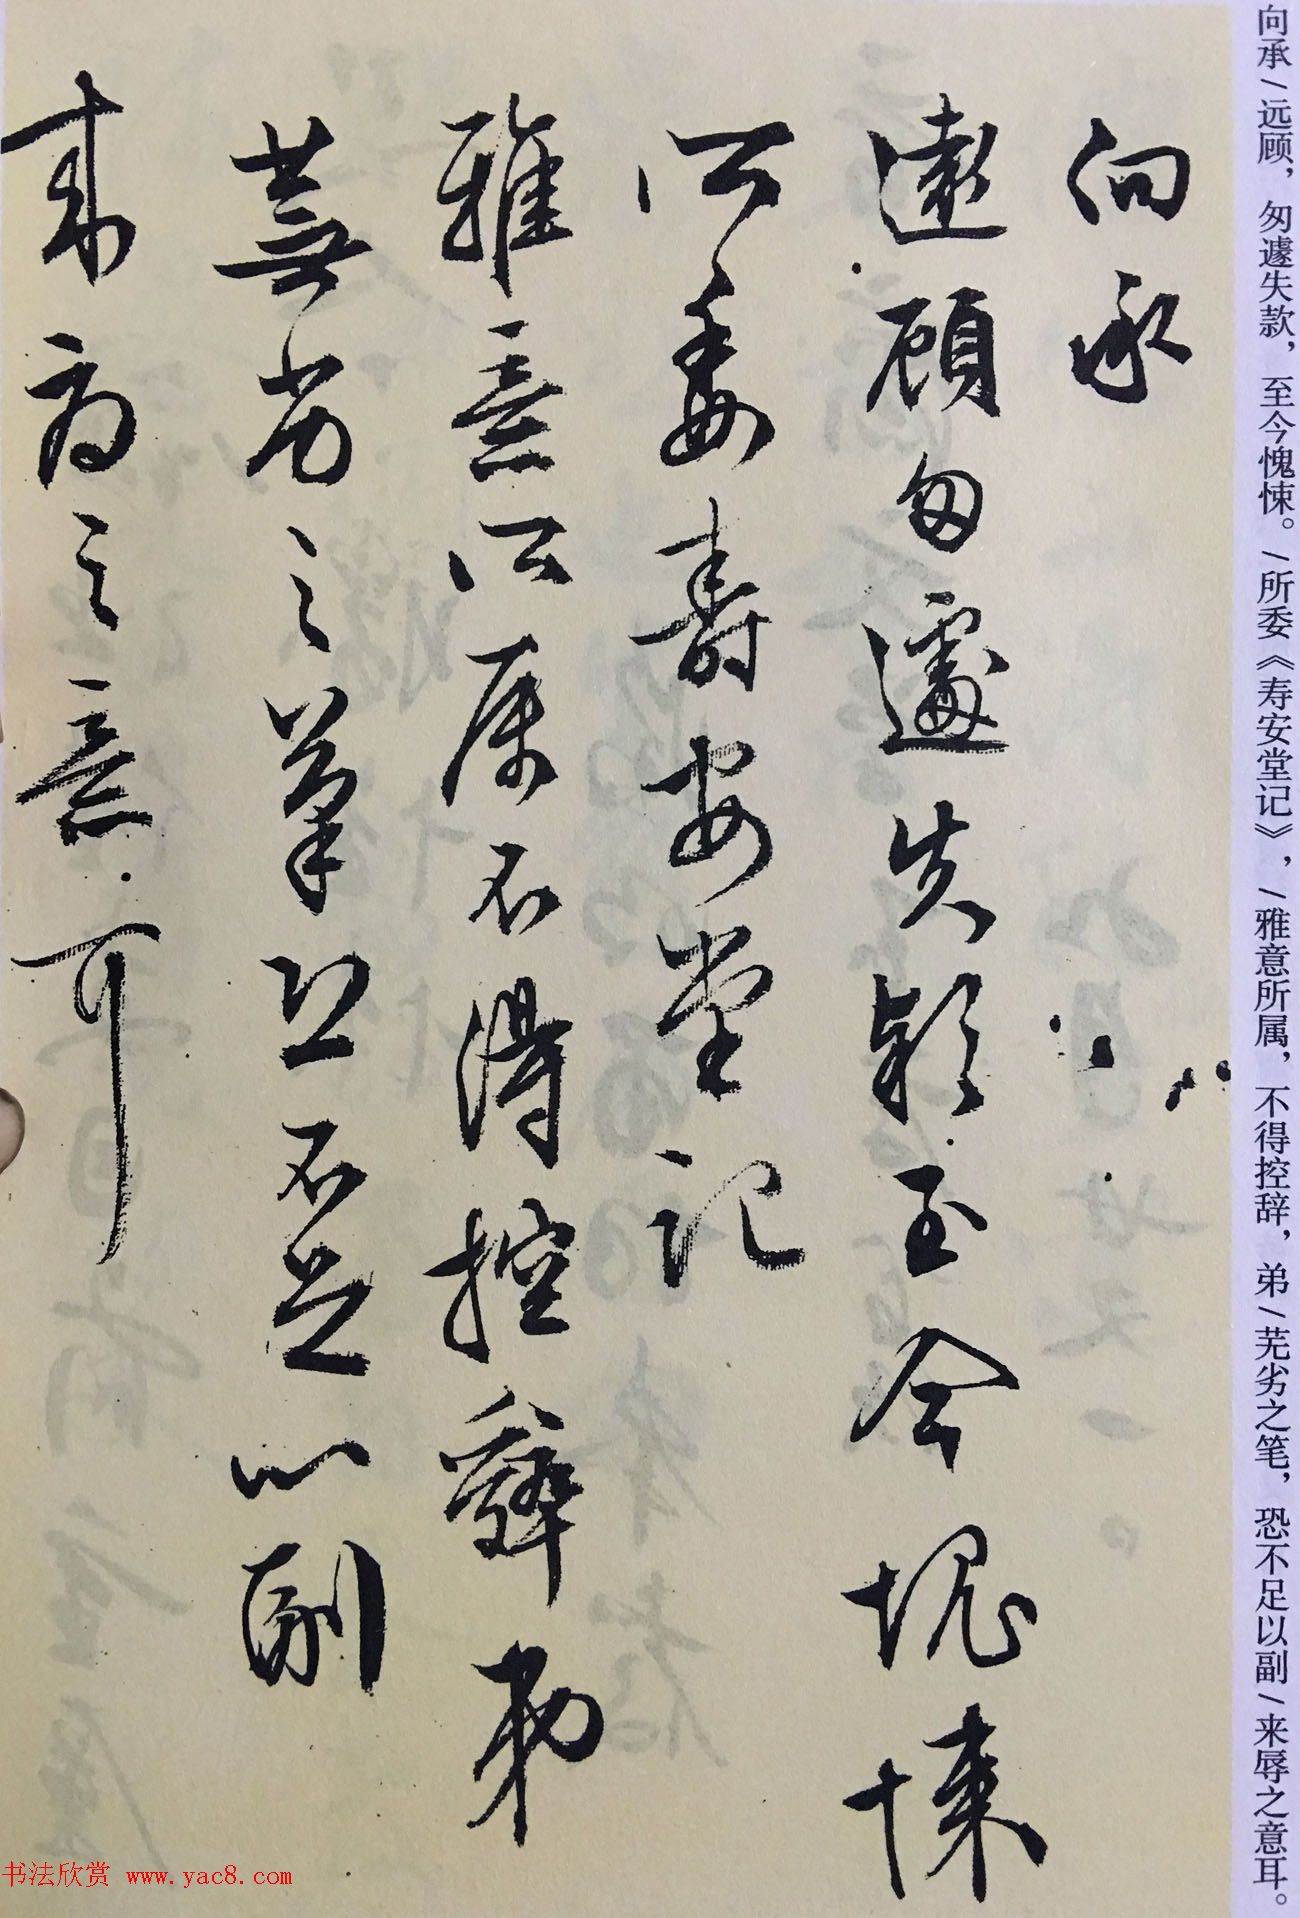 向承
遠顧匆遽失款至今愧悚
所委壽安堂記
雅意所屬不得控辭弟
蕪劣之筆恐不足以副
来辱之意耳
向承/远顾，匆遽失款，至今愧悚。/所委《寿安堂记》，/雅意所属，不得控辞，弟/芜劣之笔，恐不足以副/来辱之意耳。
书法欣赏 www.yac8.com